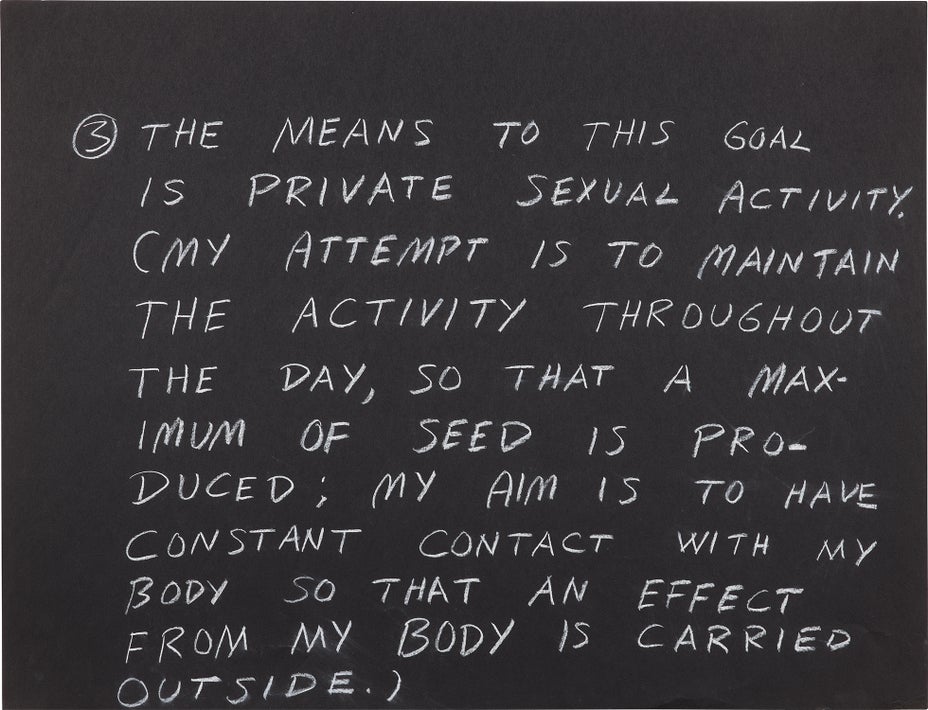 ③ THE MEANS TO THIS GOAL
IS PRIVATE SEXUAL ACTIVITY.
(MY ATTEMPT IS TO MAINTAIN
THE ACTIVITY THROUGHOUT
THE DAY, SO THAT A MAX-
IMUM OF SEED IS PRO-
DUCED; MY AIM IS TO HAVE
CONSTANT CONTACT WITH MY
BODY SO THAT AN EFFECT
FROM MY BODY IS CARRIED
OUTSIDE.)